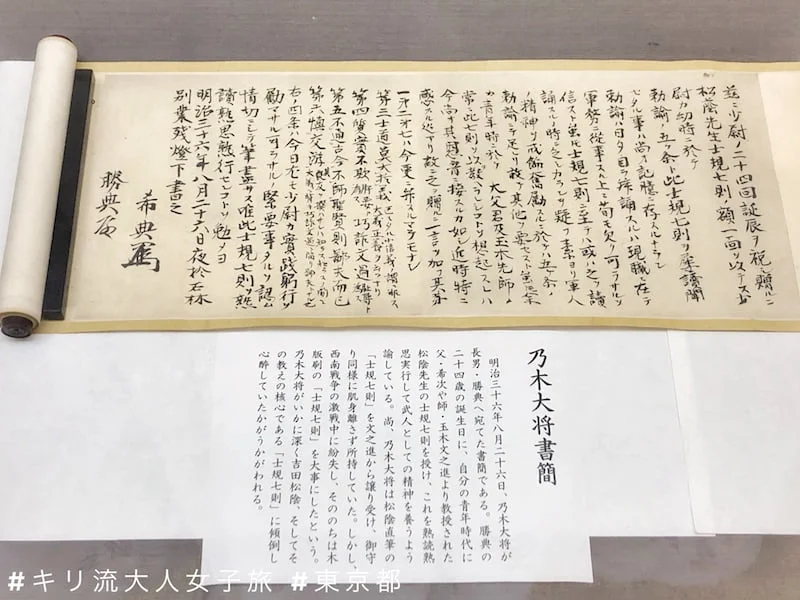 茲ニ少尉ノ二十四回誕辰ヲ祝シ贈ルニ
松蔭先生士規七則ノ額一面ヲ以テス少
尉カ幼時ニ於テ
勅諭ノ五ヶ条ト此士規七則トヲ
タル事ハ尚ホ記憶ニ存スルナラン
勅諭ハ日夕 拝誦スルハ現職ニ在テ
軍務ニ從事スル上ニ 苟モ欠ク可ラサル
信スト雖モ士規七則ニ至テハ或ハ之ヲ讀
誦スルノ時ニ乏シカラン 疑フ素ヨリ軍人
ノ精神ヲ戒飭奮勵スルニ於テハ五ヶ条ノ
勅諭ニテ足レリ故ニ其他ヲ要セスト雖 余
カ青年時ニ於テ大父君及玉木先師ノ
常ニ此七則ヲ以テ教ヘラレシコトヲ想起スレハ
今尚ホ其 音ニ接スルカ如シ近時特ニ
感スル処アリ故ニ之ヲ贈ルニ一言ヲ加フ其第
一第二ハ今更ニ弁スルマテモナシ
第三士道莫大於義
第四質實不欺 巧詐文過
第五不通古今不師聖賢則鄙夫而已
第六慎交游
右ノ四条ハ今日尤モ少尉カ實践躬行ヲ
勵マサル可ラサルノ緊要事タルヲ認ム
情切ニシテ筆盡サス唯此士規七則ヲ熟
讀熟思熟行セレコトヲ勉メヨ
明治三十六年八月二十六日夜於石林
別業残燈下書之
希典
勝典
乃木大将書簡
明治三十六年八月二十六日、乃木大将が
長男・勝典へ宛てた書簡である。勝典の
二十四歳の誕生日に、自分の青年時代に
父・希次や師・玉木文之進より教授された
松陰先生の士規七則を授け、これを熟読熟
思実行して武人としての精神を養うよう
諭している。尚、乃木大将は松陰直筆の
「士規七則」を文之進から譲り受け、御守
り同様に肌身離さず所持していた。しかし、
西南戦争の激戦中に紛失し、そののちは木
版刷の「士規七則」を大事にしたという。
乃木大将がいかに深く吉田松陰、そしてそ
の教えの核心である「士規七則」に傾倒し
心酔していたかがうかがわれる。
#キリ流大人女子旅 #東京都